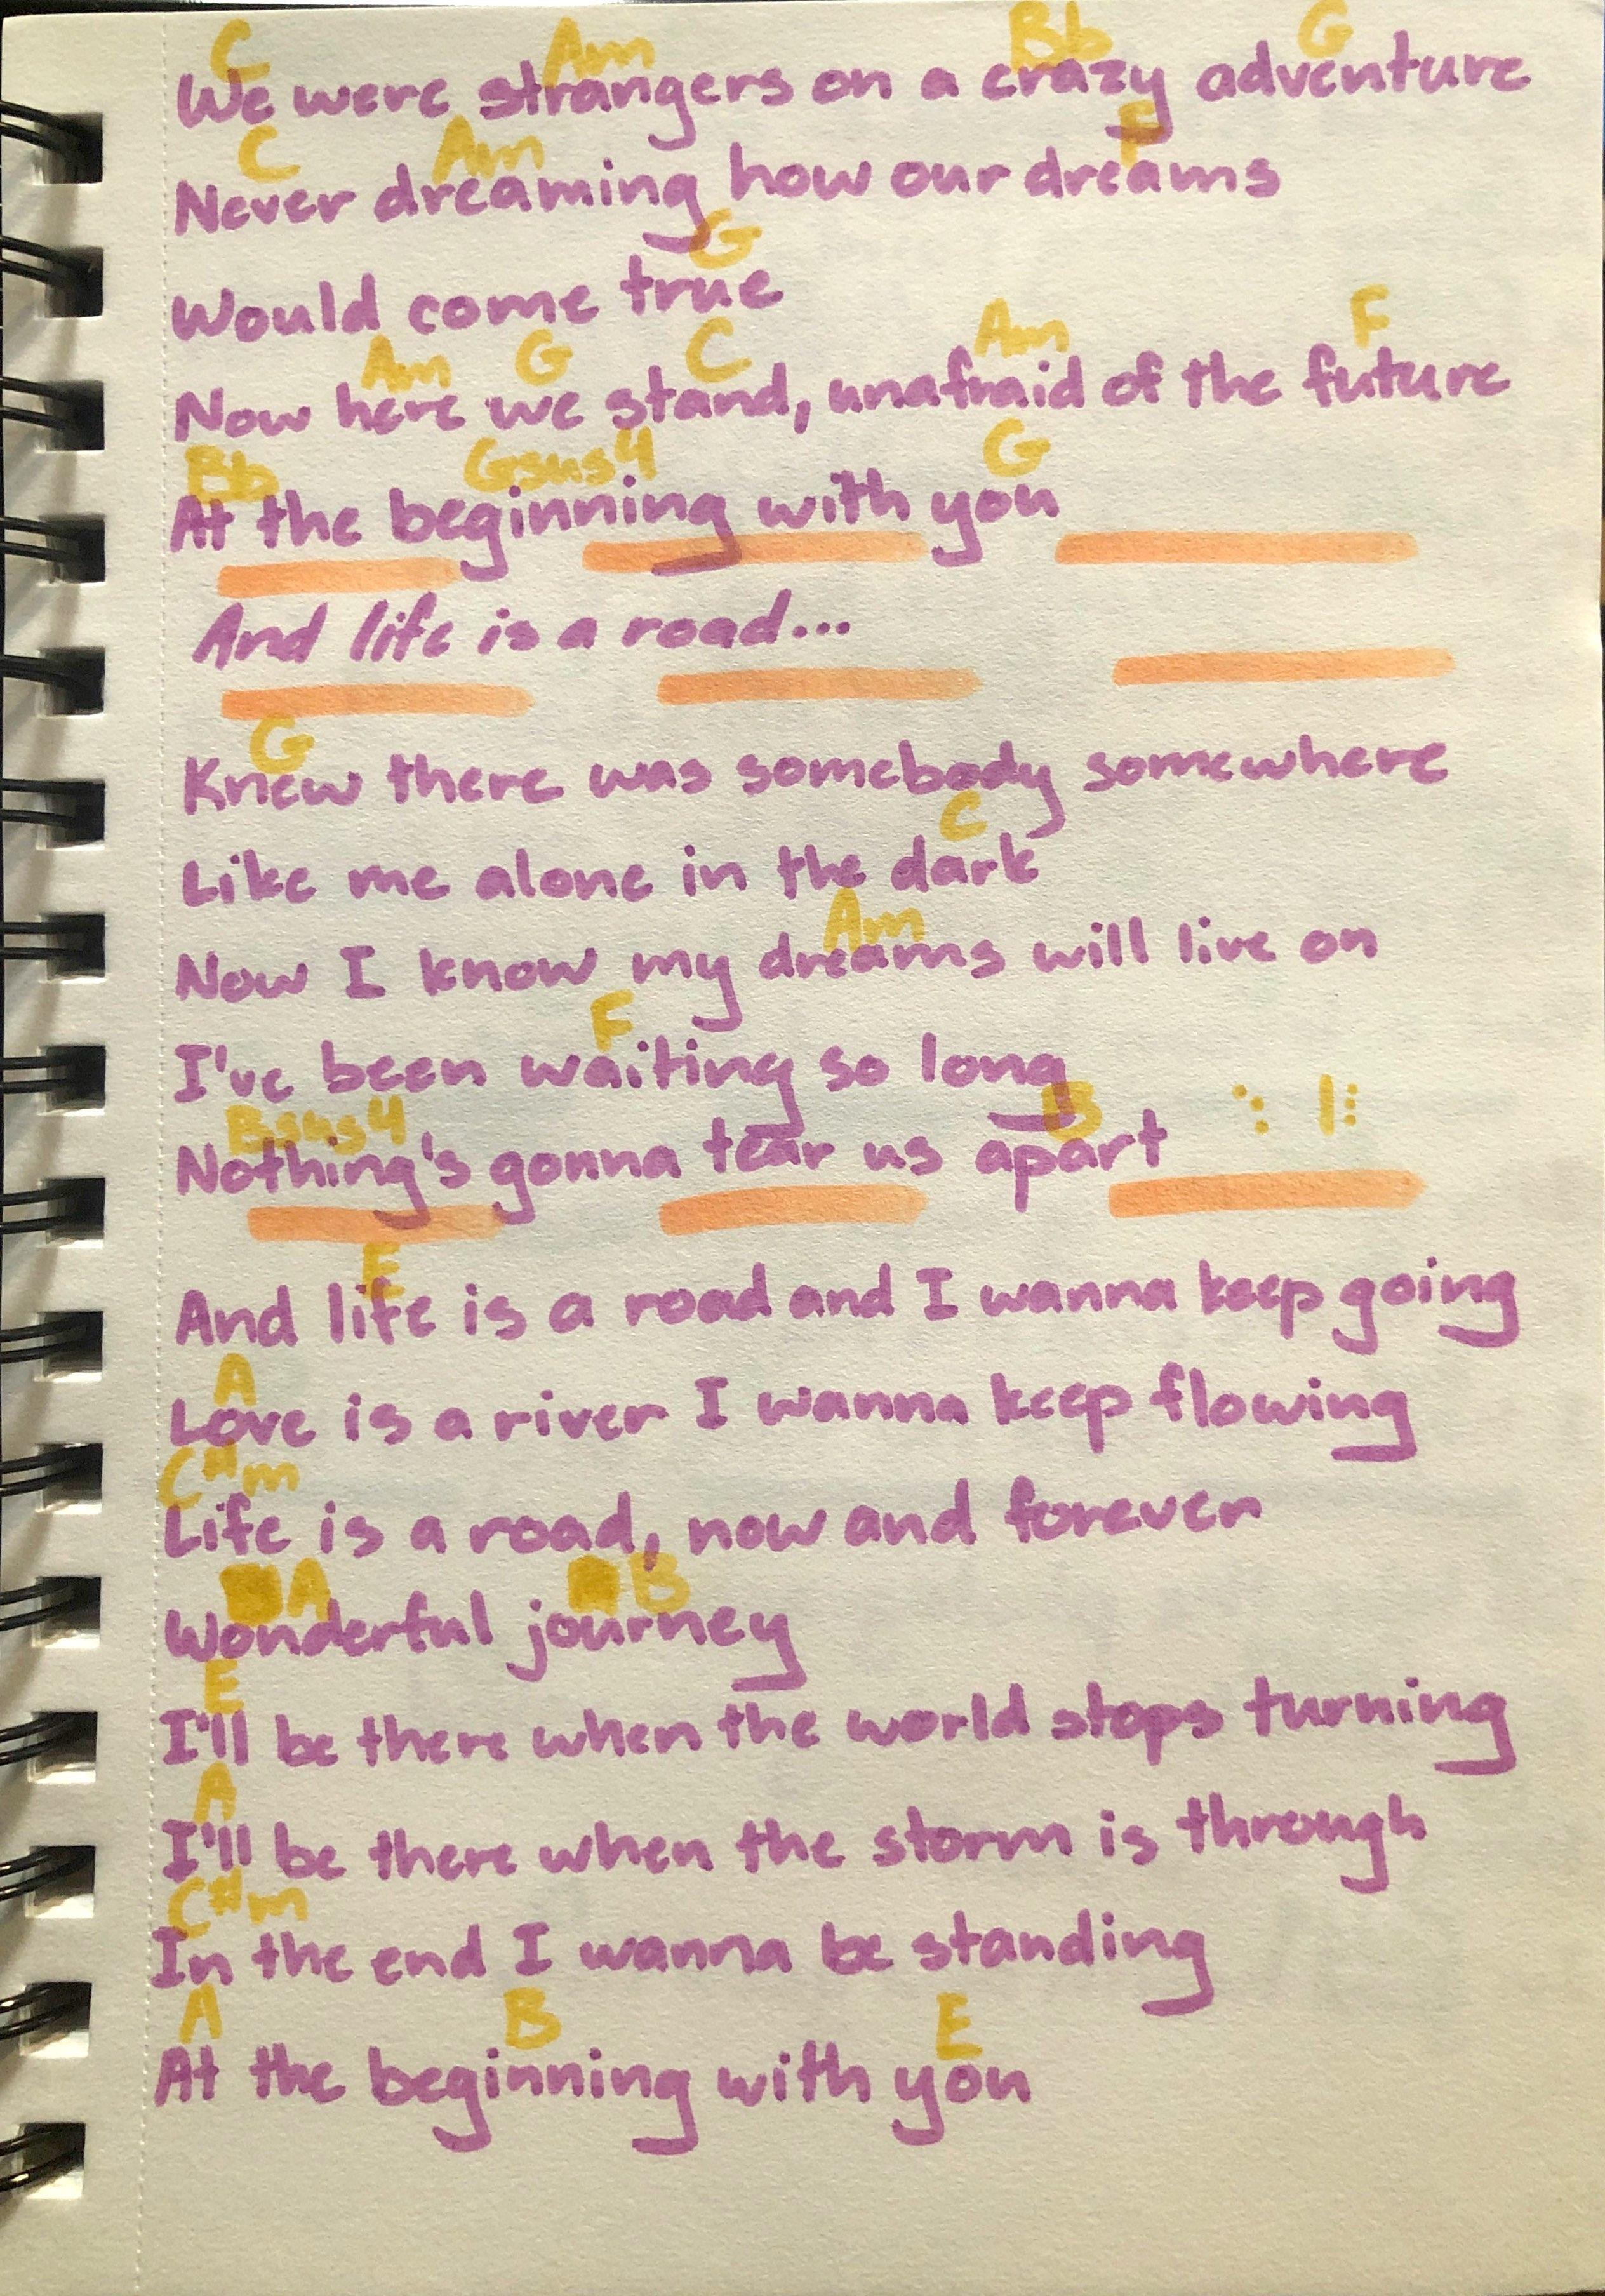 C Am Bb G
We were strangers on a crazy adventure
C Am F
Never dreaming how our dreams
G
Would come true
Am G C Am F
Now here we stand, unafraid of the future
Bb Gsus4 G
At the beginning with you
And life is a road...
G
Knew there was somebody somewhere
C
Like me alone in the dark
Am
Now I know my dreams will live on
F
I've been waiting so long
Bsus4 B
Nothing's gonna tear us apart
E
And life is a road and I wanna keep going
A
Love is a river I wanna keep flowing
C#m
Life is a road, now and forever
A B
Wonderful journey
E
I'll be there when the world stops turning
A
I'll be there when the storm is through
C#m
In the end I wanna be standing
A B E
At the beginning with you